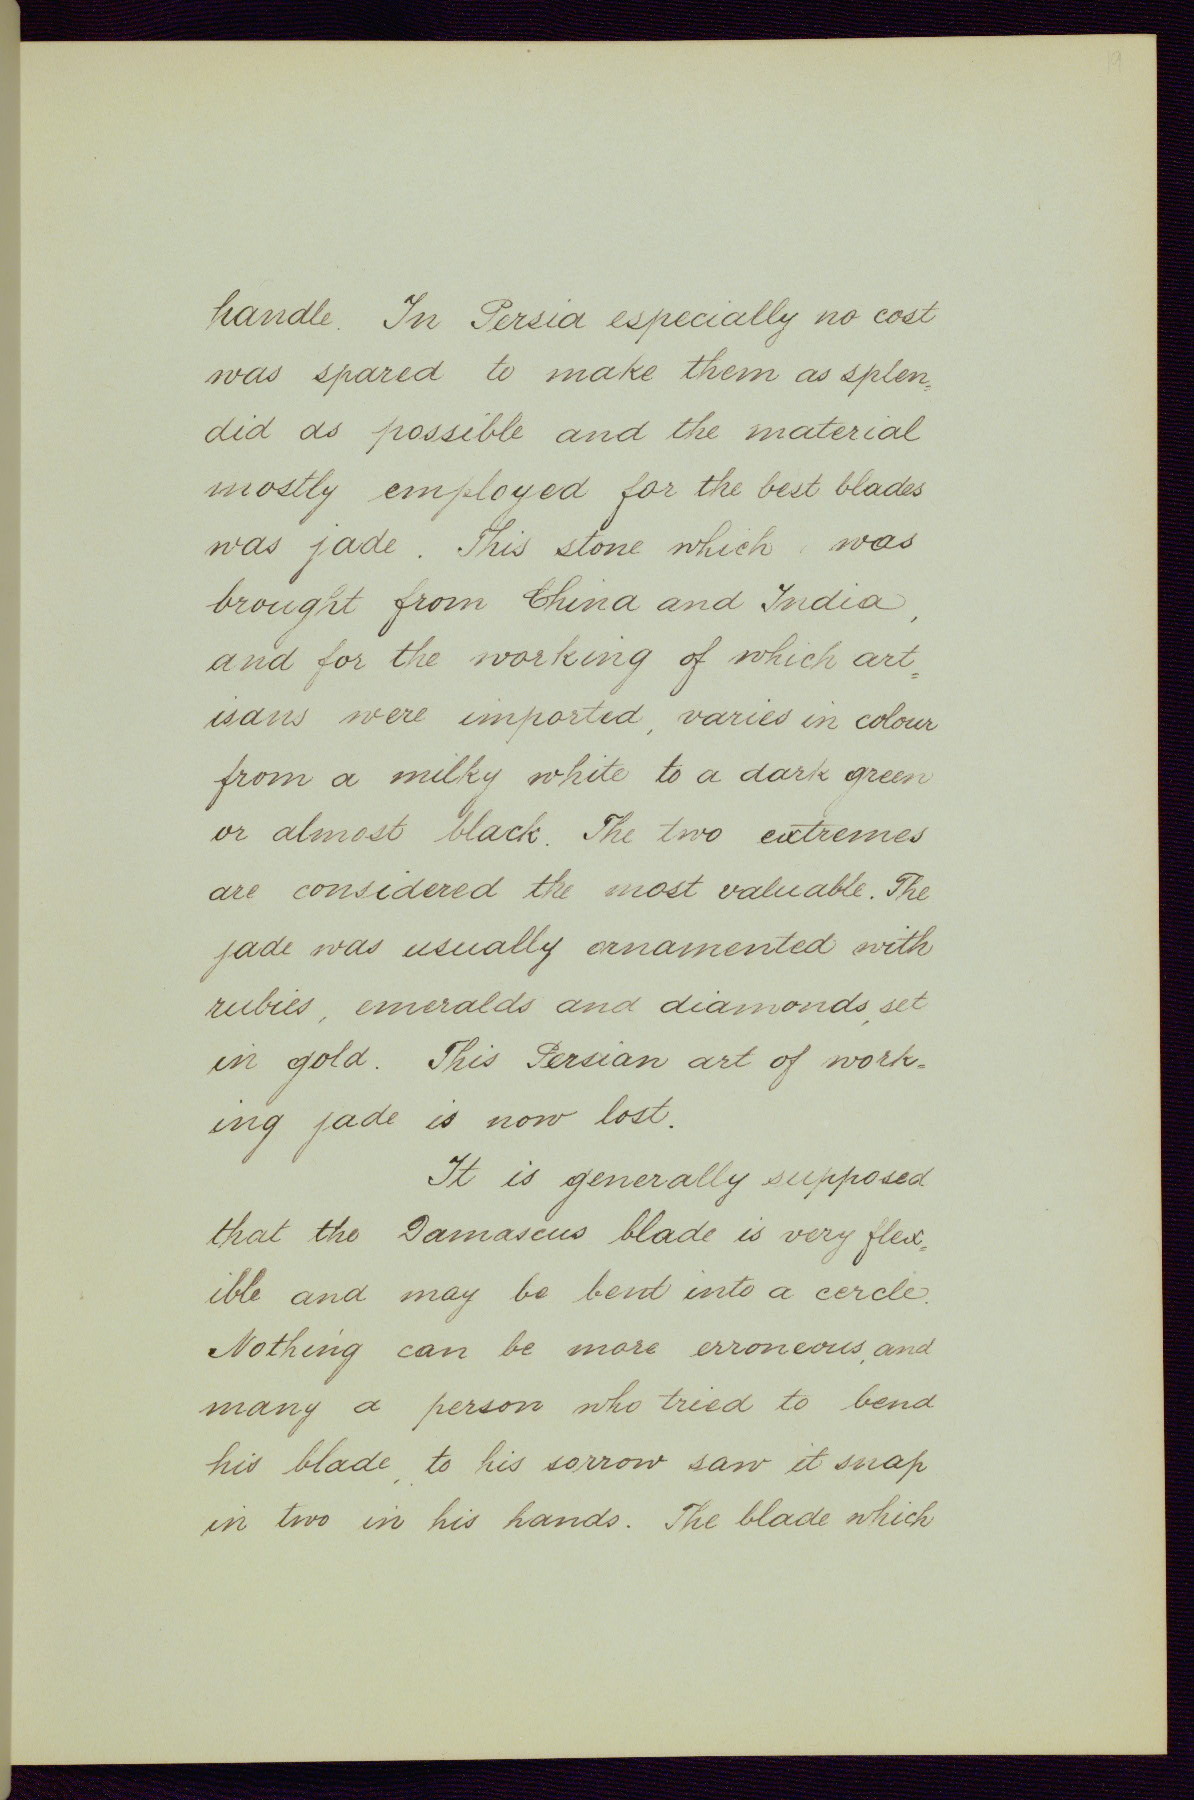 19
handle. In Persia especially no cost
was spared to make them as splen=
did as possible and the material
mostly employed for the best blades
was jade. This stone which was
brought from China and India,
and for the working of which art=
isans were imported, varies in colour
from a milky white to a dark green
or almost black. The two extremes
are considered the most valuable. The
jade was usually ornamented with
rubies, emeralds and diamonds, set
in gold. This Persian art of work=
ing jade is now lost.
It is generally supposed
that the Damascus blade is very flex=
ible and may be bent into a cercle.
Nothing can be more erroneous, and
many a person who tried to bend
his blade, to his sorrow saw it snap
in two in his hands. The blade which